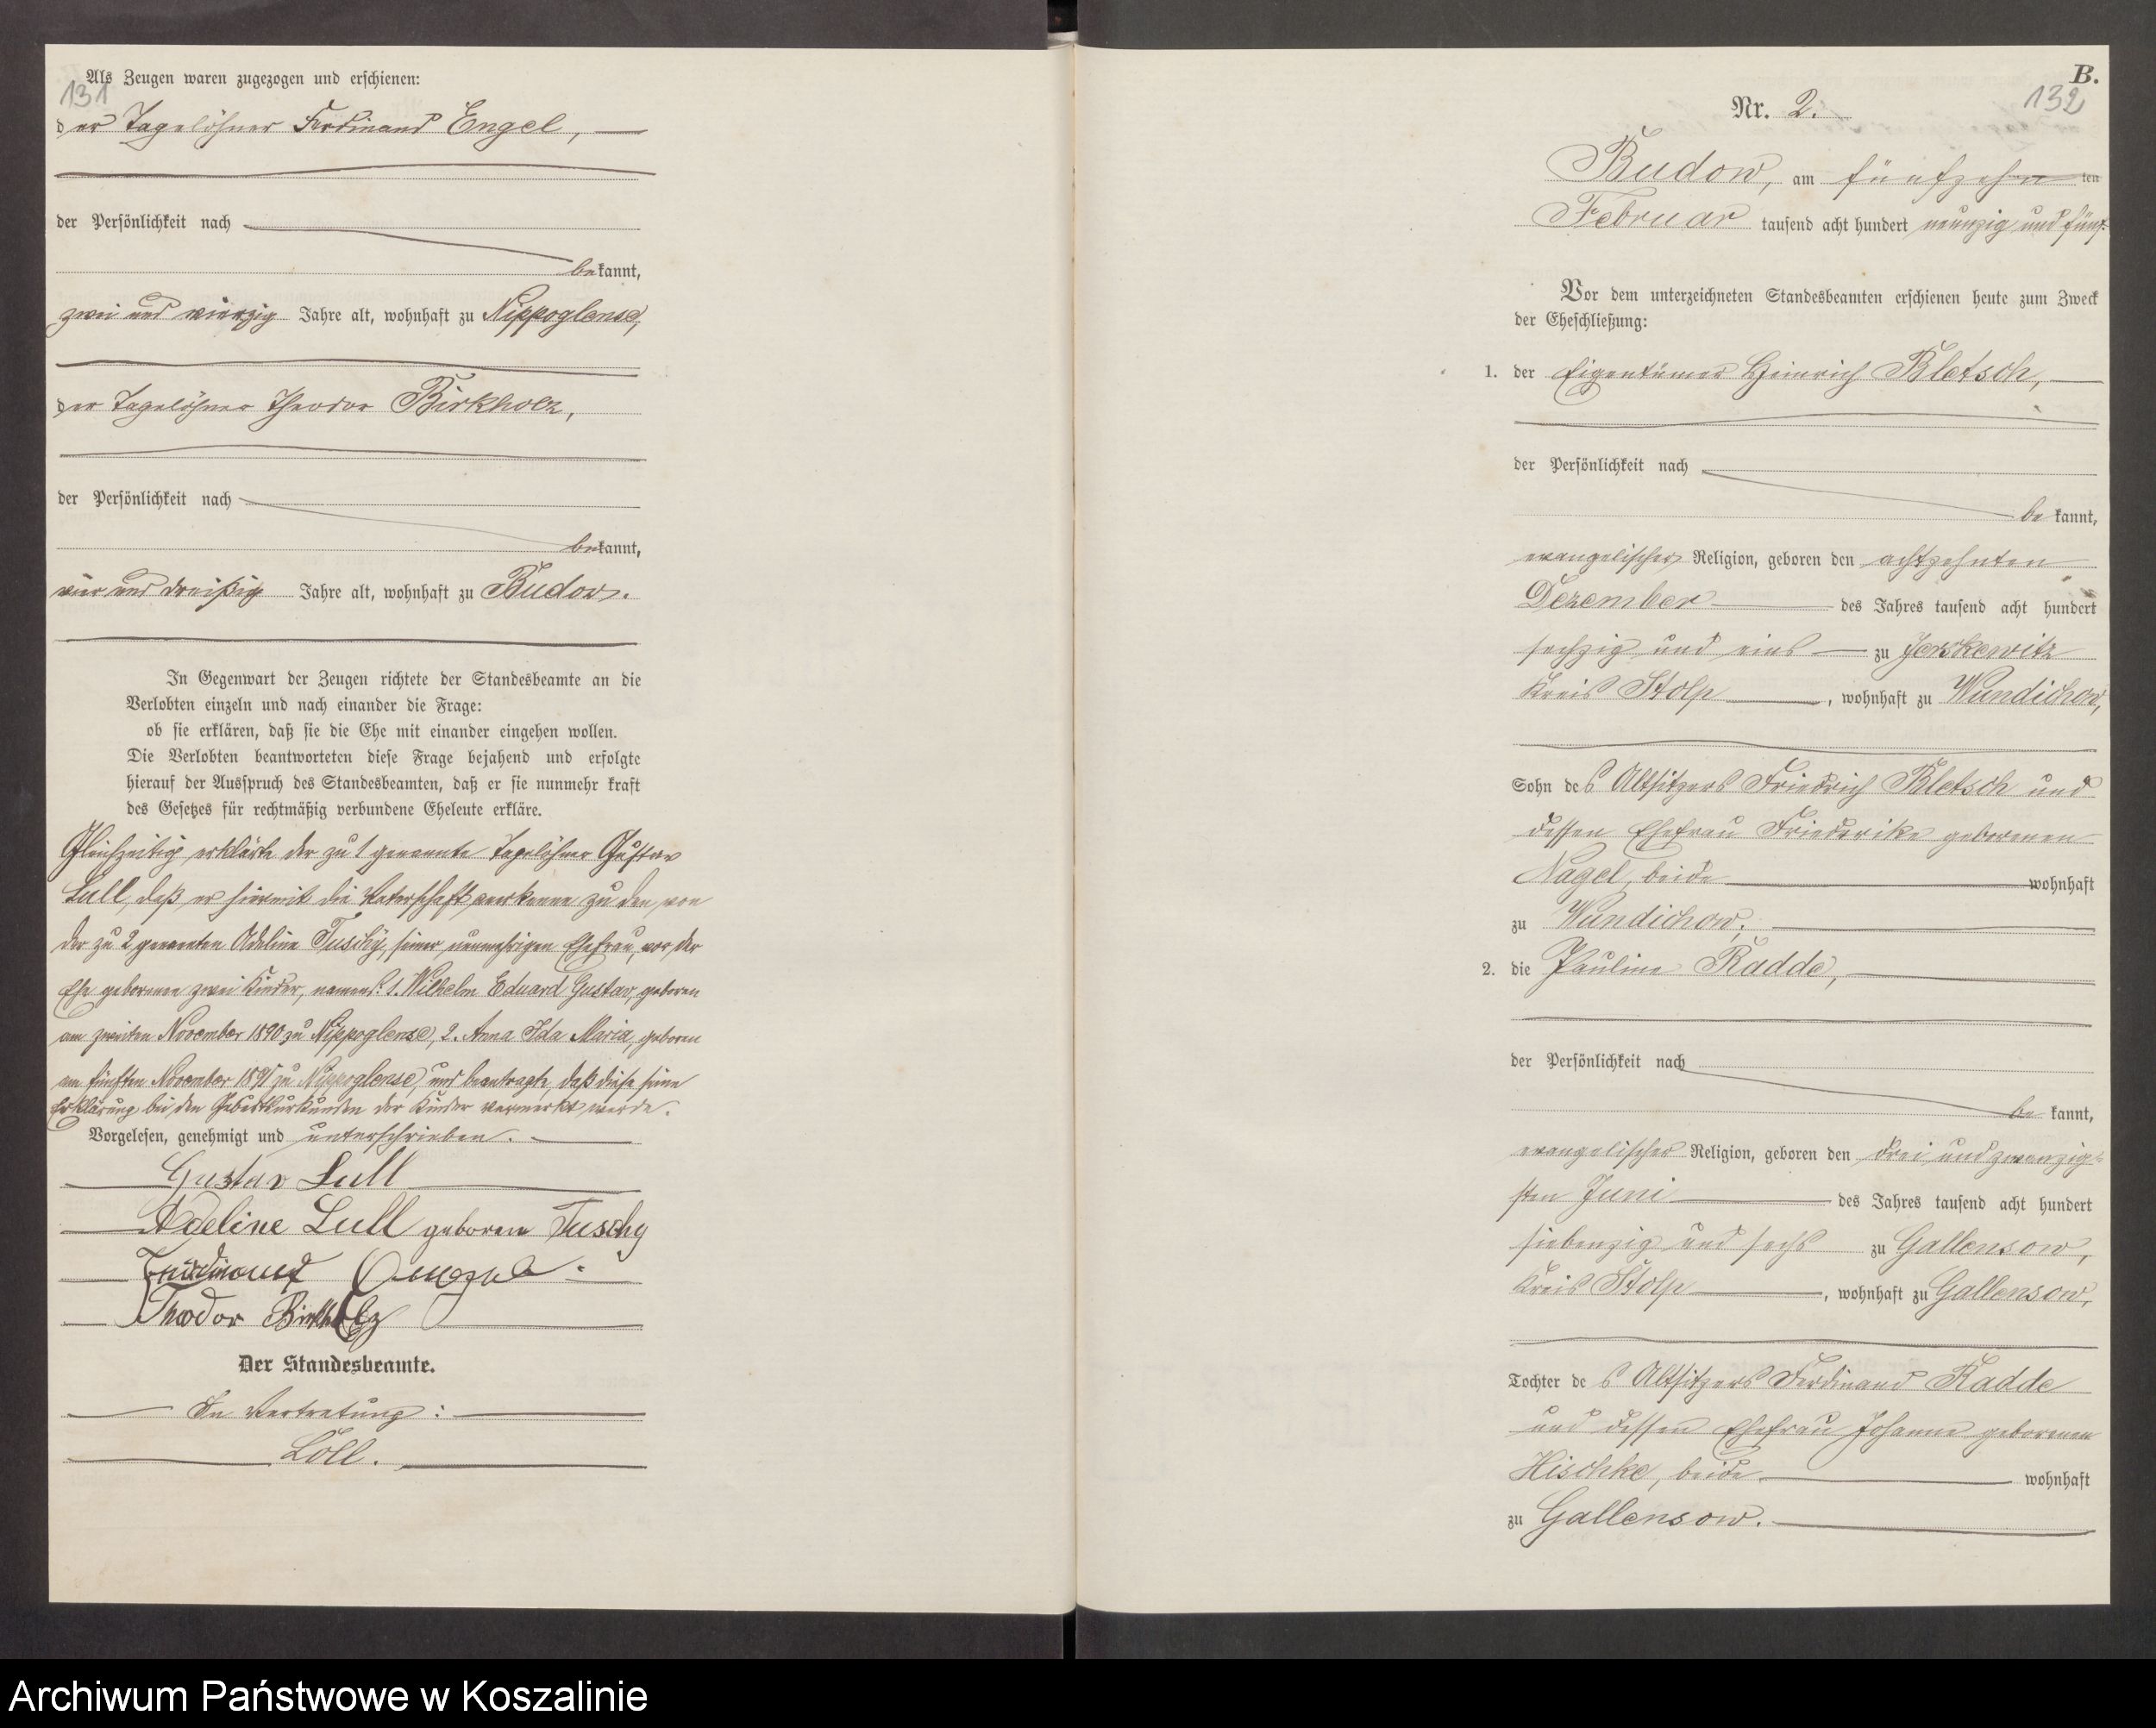 Als Zeugen waren zugezogen und erschienen:
131
der Tagelöhner Ferdinand Engel,
der Persönlichkeit nach
bekannt,
zwei und vierzig Jahre alt, wohnhaft zu Nippoglense,
der Tagelöhner Theodor Birkholz,
der Persönlichkeit nach
bekannt,
vier und dreißig Jahre alt, wohnhaft zu Budow.
In Gegenwart der Zeugen richtete der Standesbeamte an die
Verlobten einzeln und nach einander die Frage:
ob sie erklären, daß sie die Ehe mit einander eingehen wollen.
Die Verlobten beantworteten diese Frage bejahend und erfolgte
hierauf der Ausspruch des Standesbeamten, daß er sie nunmehr kraft
des Gesetzes für rechtmäßig verbundene Eheleute erkläre.
Gleichzeitig erklärte der zu 1 genannte Tagelöhner Gustav
Lull, daß er hiermit die Vaterschaft anerkenne zu den von
der zu 2 genannten Adeline Tuschy, seiner nunmehrigen Ehefrau, vor der
Ehe geborenen zwei Kinder, namens: 1. Wilhelm Eduard Gustav, geboren
am zweiten November 1890 zu Nippoglense, 2. Anna Ida Maria, geboren
am fünften November 1891 zu Nippoglense, und beantragte, daß diese seine
Erklärung bei den Geburtsurkunden der Kinder vermerkt werde.
Vorgelesen, genehmigt und unterschrieben.
Gustav Lull
Adeline Lull geborene Tuschy
Ferdinand Engel.
Theodor Birkholz
Der Standesbeamte.
In Vertretung:
Löll.
B.
132
Nr. 2.
Budow, am fünfzehnten
Februar tausend acht hundert neunzig und fünf.
Vor dem unterzeichneten Standesbeamten erschienen heute zum Zweck
der Eheschließung:
1. der Eigentümer Heinrich Bletsch,
der Persönlichkeit nach
bekannt,
evangelischer Religion, geboren den achtzehnten
Dezember des Jahres tausend acht hundert
sechzig und eins zu Jerskewitz
Kreis Stolp, wohnhaft zu Wundichow,
Sohn des Altsitzers Friedrich Bletsch und
dessen Ehefrau Friederike geborenen
Nagel, beide wohnhaft
zu Wundichow;
2. die Pauline Radde,
der Persönlichkeit nach
bekannt,
evangelischer Religion, geboren den drei und zwanzig-
sten Juni des Jahres tausend acht hundert
siebenzig und sechs zu Gallensow,
Kreis Stolp, wohnhaft zu Gallensow,
Tochter des Altsitzers Ferdinand Radde
und dessen Ehefrau Johanne geborenen
Hischke, beide wohnhaft
zu Gallensow.
Archiwum Państwowe w Koszalinie